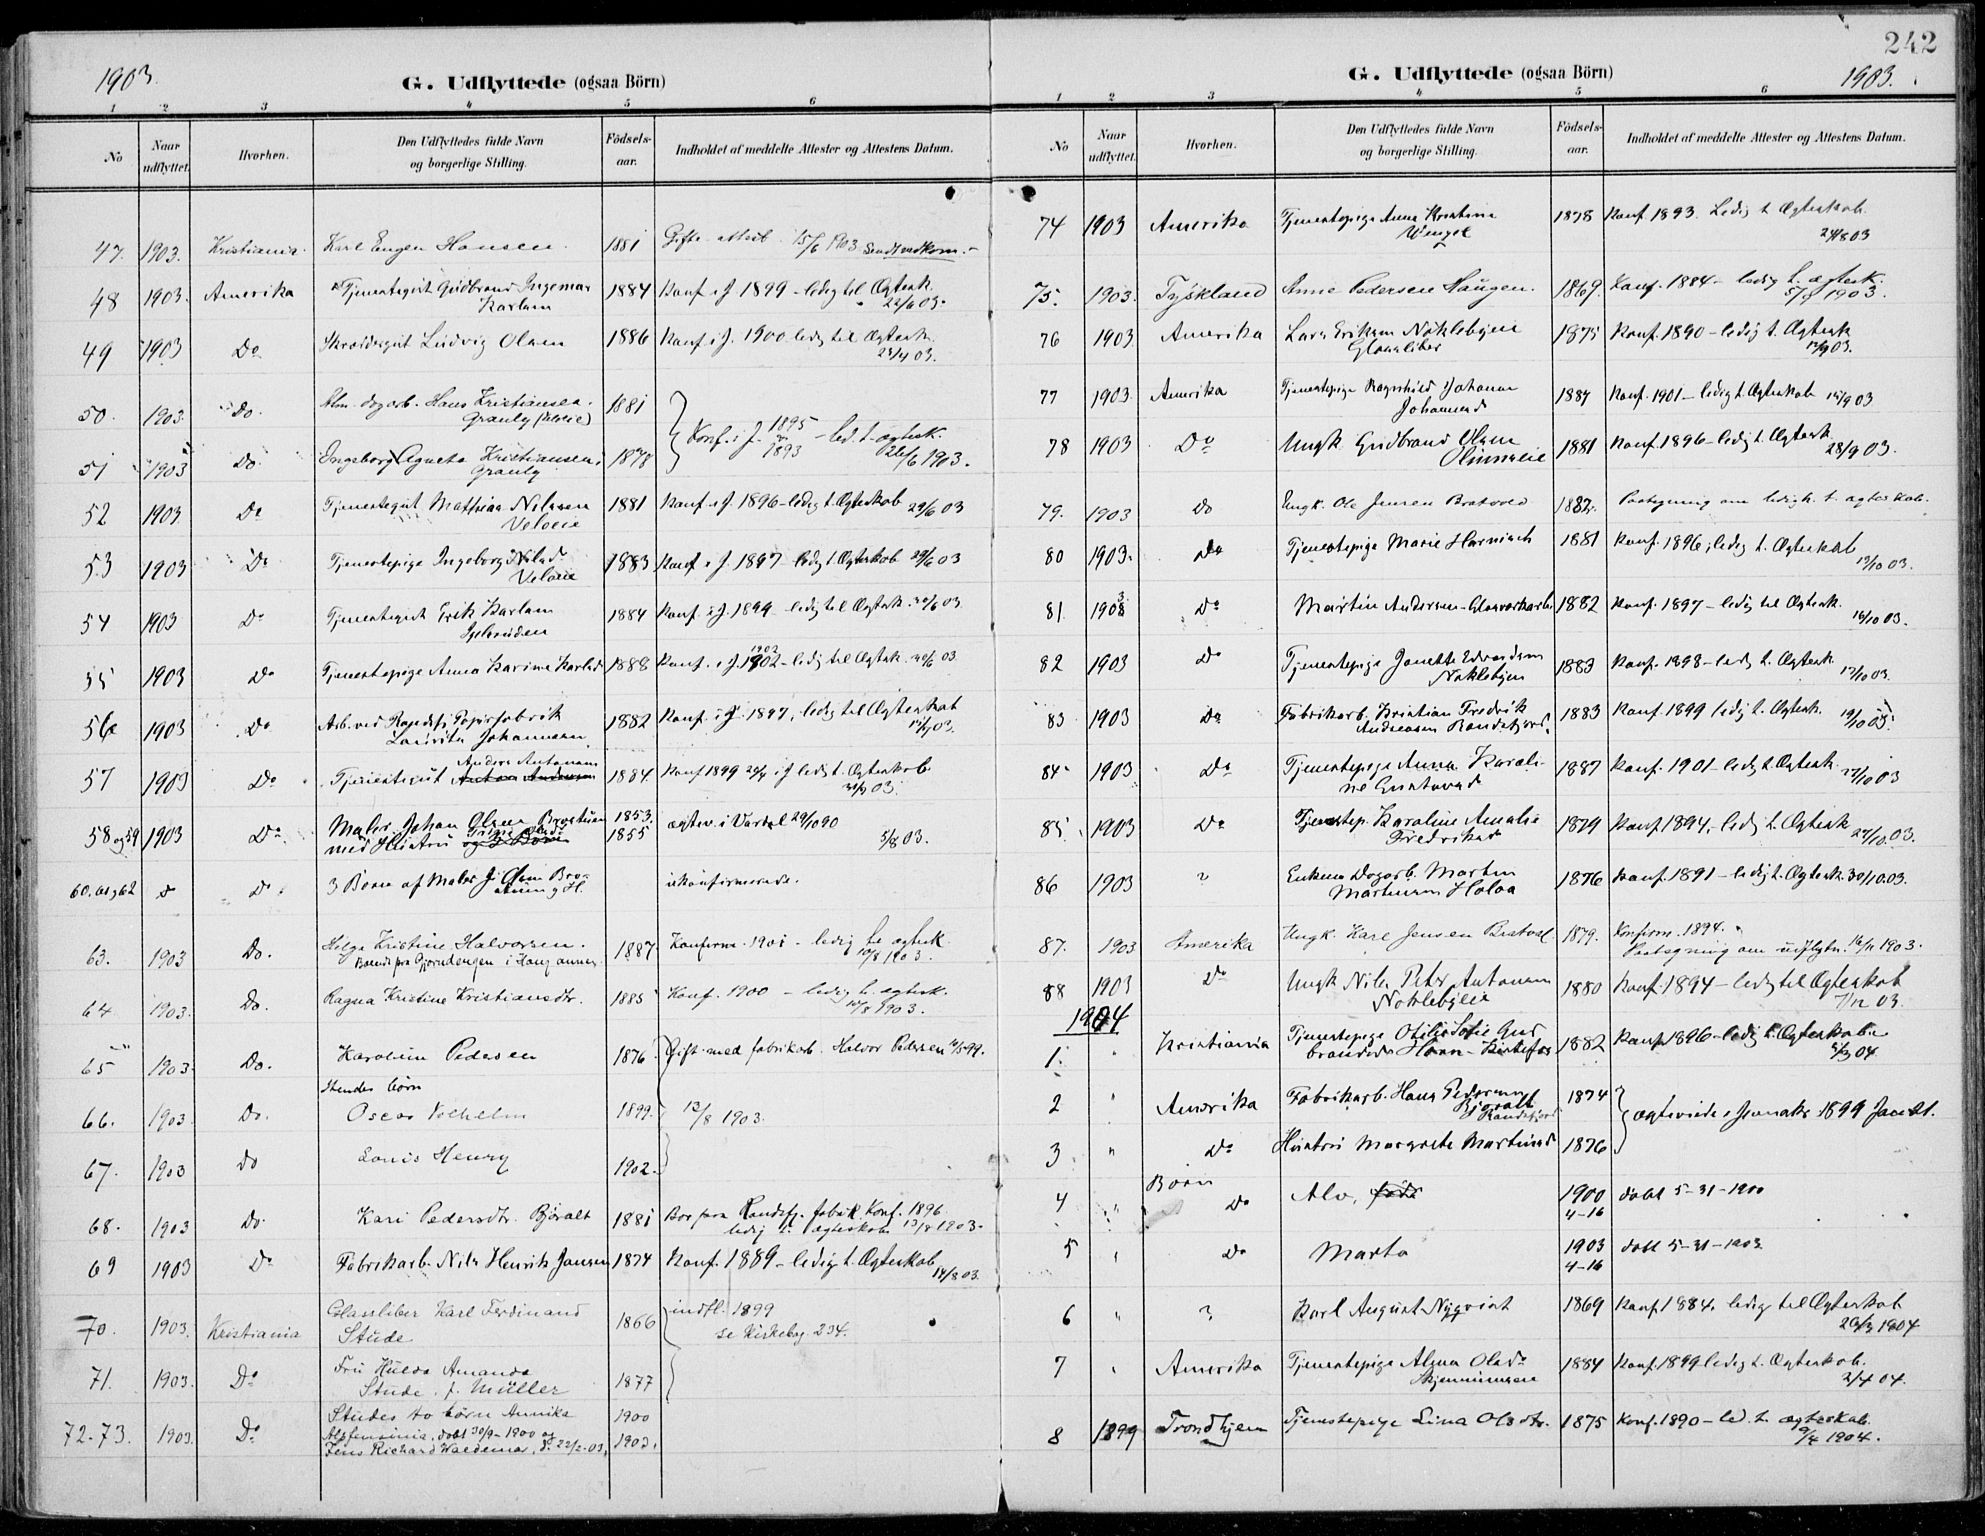 242
1903.
G. Udflyttede (ogsaa Börn)
1 2 3 4 5 6
No Naar udflyttet. Hvorhen. Den Udflyttedes fulde Navn og borgerlige Stilling. Födsels-aar. Indholdet af meddelte Attester og Attestens Datum.
47. 1903. Kristiania. Karl Eugen Hansen. 1881 Gifte-attest 15/6 1903
48 1903. Amerika Tjenestegut Gudbrand Ingemar 1884 Konf. i J. 1899 - ledig til Ægtesk.
Karlsen 22/6 03.
49 1903 Do Skrædergut Ludvig Olsen 1886 Konf. i J. 1900 - ledig til Ægtesk.
50. 1903. Do. Hans Kristiansen. 1881
Granly
Konf. i J. 1895 - led. t. ægtesk.
51 1903 Do. Ingeborg Agneta Kristiansen 1878 1893 26/6 1903.
Granly
52 1903 Do Tjenestegut Mathias Nilssen 1881 Konf. i J. 1896 - ledig t. Ægteskab 29/6 03
Veloeie
53 1903 Do Tjenestepige Ingeborg Nilsd 1883 Konf. i J. 1897 - ledig t. Ægteskab 29/6 03
Veloeie
54 1903 Do Tjenestegut Erik Karlsen 1884 Konf. i J. 1899 - ledig til Ægtesk. 30/6 03
55 1903 Do Tjenestepige Anna Karine Karlsd 1888 Konf. i J. 1902 - ledig til Ægtesk. 30/6 03
1902
56 1903 Do Arb. ved Randsfj. Papirfabrik 1882 Konf. i J. 1897, ledig til Ægteskab
Lauritz Johannesen
Anders Antonsen
57 1903 Do Tjenestegut Anton Andersen 1884. Konf 1899 i J ledig t. Ægteskab.
58 og 59 1903 Do Maler Johan Olsen Braatuen 1853. ægtev. i Vardal 29/10 90
med Hustru og 3 Børn 1855 5/8 03.
60, 61 og 62 Do. 3 Børn af Maler J. Olsen ukonfirmerede.
63. 1903 Do. Helga Kristine Halvorsen. 1887 Konfirm. 1901 - ledig t. ægtesk.
10/8 1903.
64 1903. Do. Ragna Kristine Kristiansdtr. 1885 Konf. 1900 - ledig t. ægtesk.
65 1903. Do. Karoline Pedersen 1876. Gift med fabrikarb. Halvor Pedersen
Hendes børn
66. 1903. Do. Oscar Vilhelm 1899. 12/8 1903.
67. 1903 Do Louis Henry 1902.
68. 1903 Do. Kari Pedersdtr. Bjøralt 1881 Bor paa Randsfj. fabrik Konf. 1896
ledig t. ægteskab. 13/8 1903.
69 1903 Do Fabrikarb. Nils Henrik Jansen 1874 Konf. 1889 - ledig t. Ægteskab
14/8 03.
70. 1903. Kristiania Glassliber Karl Ferdinand 1866 indfl. 1899
Stude se Kirkebog 234.
71. 1903. Do Fru Hulda Amanda
Stude f. Müller 1877
72-73. 1903. Do Studes to børn Annika 1900
døbt 30/9-1900 og
Jens Richard Waldemar, d. 22/2-03. 1902.
1903.
G. Udflyttede (ogsaa Börn)
1 2 3 4 5 6
No Naar udflyttet. Hvorhen. Den Udflyttedes fulde Navn og borgerlige Stilling. Födsels-aar. Indholdet af meddelte Attester og Attestens Datum.
74 1903 Amerika Tjenestepige Anna Kristine 1878 Konf. 1893. Ledig t. Ægteskab.
Wengel
75. 1903. Tyskland Anne Pedersen Haugen. 1869. Konf. 1884 - ledig t. ægtesk.
1903.
76 1903 Amerika Lars Eriksen Nøklebyeie 1875 Konf. 1890 - ledig t. Ægtesk
Glassliber
77 1903 Amerika Tjenestepige Ragnhild Johanne 1887 Konf. 1901 - ledig t. Ægteskab
Johannesd
78 1903 Do Ungk Gudbrand Olsen 1881 Konf. 1896 - ledig t. Ægtesk.
28/9 03.
79. 1903 Do Ungk. Ole Jensen Bratvold 1882. Paategning om ledigh. t. ægteskab.
80 1903. Do Tjenestepige Marie Harnisch 1881 Konf. 1896, ledig t. Ægteskab
13/10 03.
81 1903 Do Martin Andersen - Glasværkarb. 1882 Konf. 1897 - ledig til Ægtesk.
16/10 03.
82 1903 Do Tjenestepige Janette Edvardsen 1883 Konf. 1898 - ledig t. Ægtesk.
Nøklebyeie 17/10 03.
83 1903 Do Fabrikarb. Kristian Fredrik 1883 Konf. 1899 ledig t. Ægtesk. 19/10 03.
Andreassen Randsfjord.
84 1903 Do Tjenestepige Anna Karoli- 1887 Konf. 1901 - ledig t. Ægtesk.
ne Gustavsd 27/10 03
85. 1903 Do Tjenestep. Karoline Amalie 1879 Konf. 1894, - ledig t. Ægtesk
Fredriksd 27/10.03.
86 1903 ? Enkem. Dagarb. Martin 1876 Konf. 1891 - ledig t. Ægtesk. 30/10.03.
Martinsen Holoa
87. 1903 Amerika Ungk. Karl Jensen Bratvol 1879. Konfirm. 1894.
Paategning om udflytn. 16/11 1903.
88 1903 Do Ungk Nils Peter Antonsen 1880 Konf. 1894 - ledig til Ægteskab
Nøklebyeie 7/12 03.
1904
1. " Kristiania Tjenestepige Otilie Sofie Gud- 1882 Konf 1896 - ledig t. Ægteskab.
brandsd
2 " Amerika Fabrikarb. Hans Pedersen 1874
Bjøralt
Randsfjord
ægteviede i Jevnaker 1899
3 " Do Hustru Margrete Martinsd 1876
Børn
4 " Do Alv, født 1900 døbt 5-31-1900
4-16
5 " Do Marta 1903 døbt 5-31-1903
4-16
6 " ? Karl August Nyqvist 1869 Konf. 1884. ledig til Ægteskab
1904
7 " Amerika Tjenestepige Alma Olsdr 1884 Konf. 1899 ledig t. Ægteskab.
2/4 04.
8 1899 Trondhjem Tjenestepige Lina Olsdtr. 1875 Konf. 1890 - led. t. ægteskab.
9/4 1904.